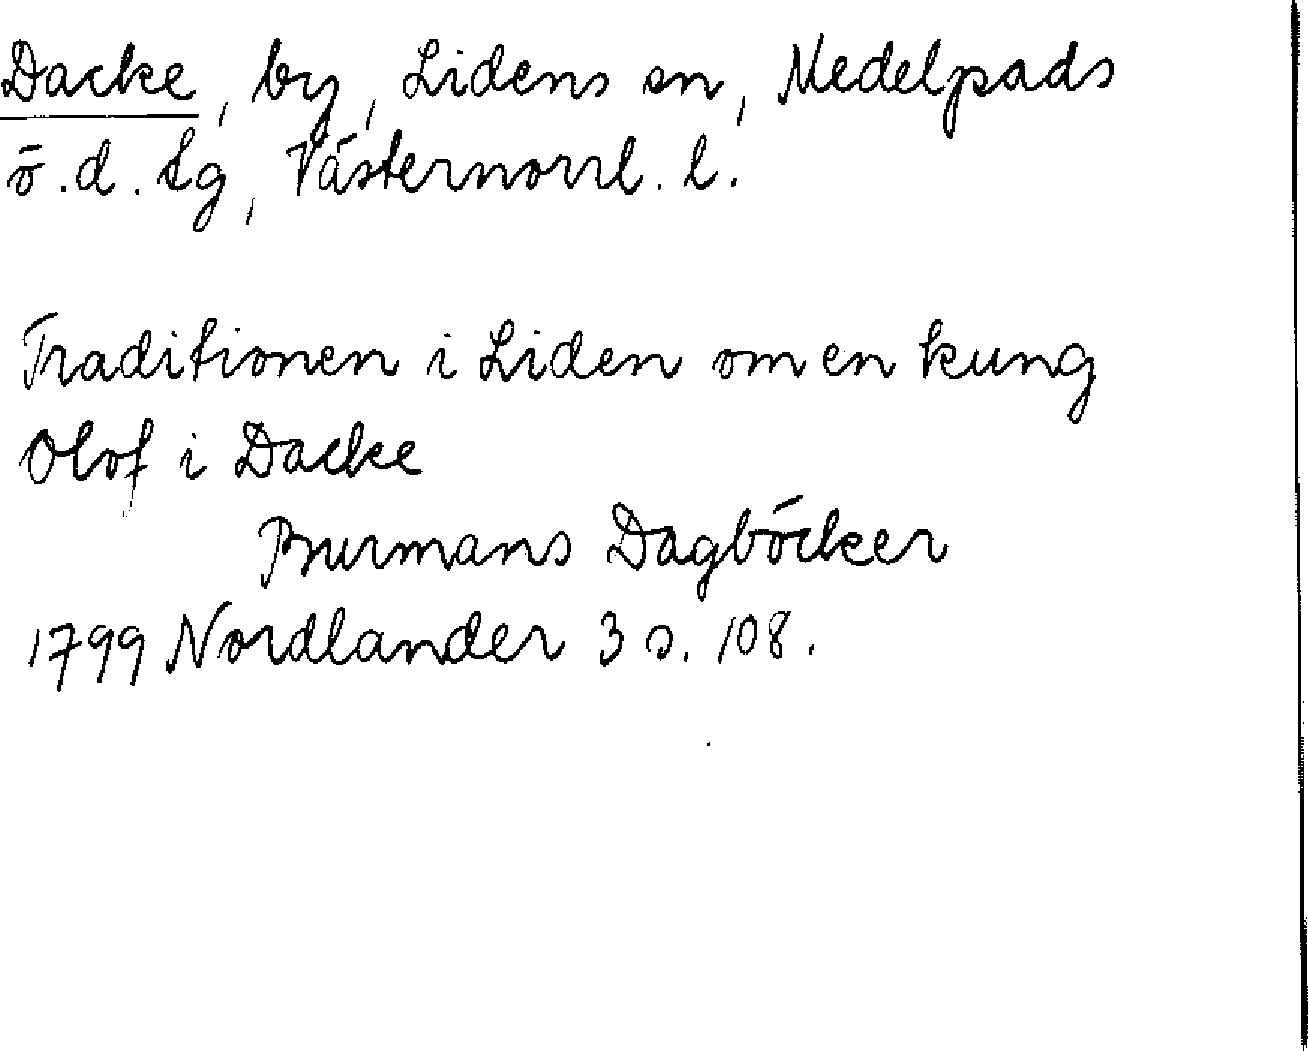 Dacke, by, Lidens sn, Medelpads
ö.d. tg, Västernorrl. l.
Traditionen i Liden om en kung
Olof i Dacke
Burmans Dagböcker
1799 Nordlander 3 s. 108.